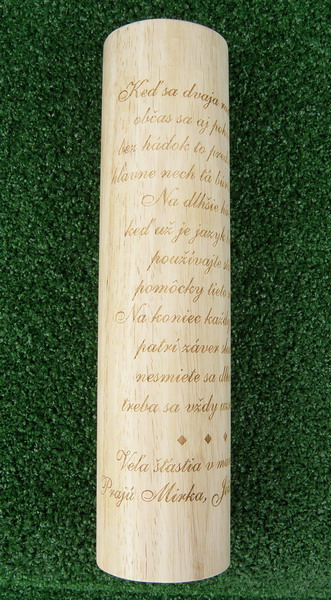 Keď sa dvaja
občas sa aj
bez hádok to
hlavne nech tá
Na dlhšie
keď už je jazyk
používajte
pomôcky tieto
Na koniec
patrí záver
nesmiete sa
treba sa vždy
Veľa šťastia v
Prajú Mirka,